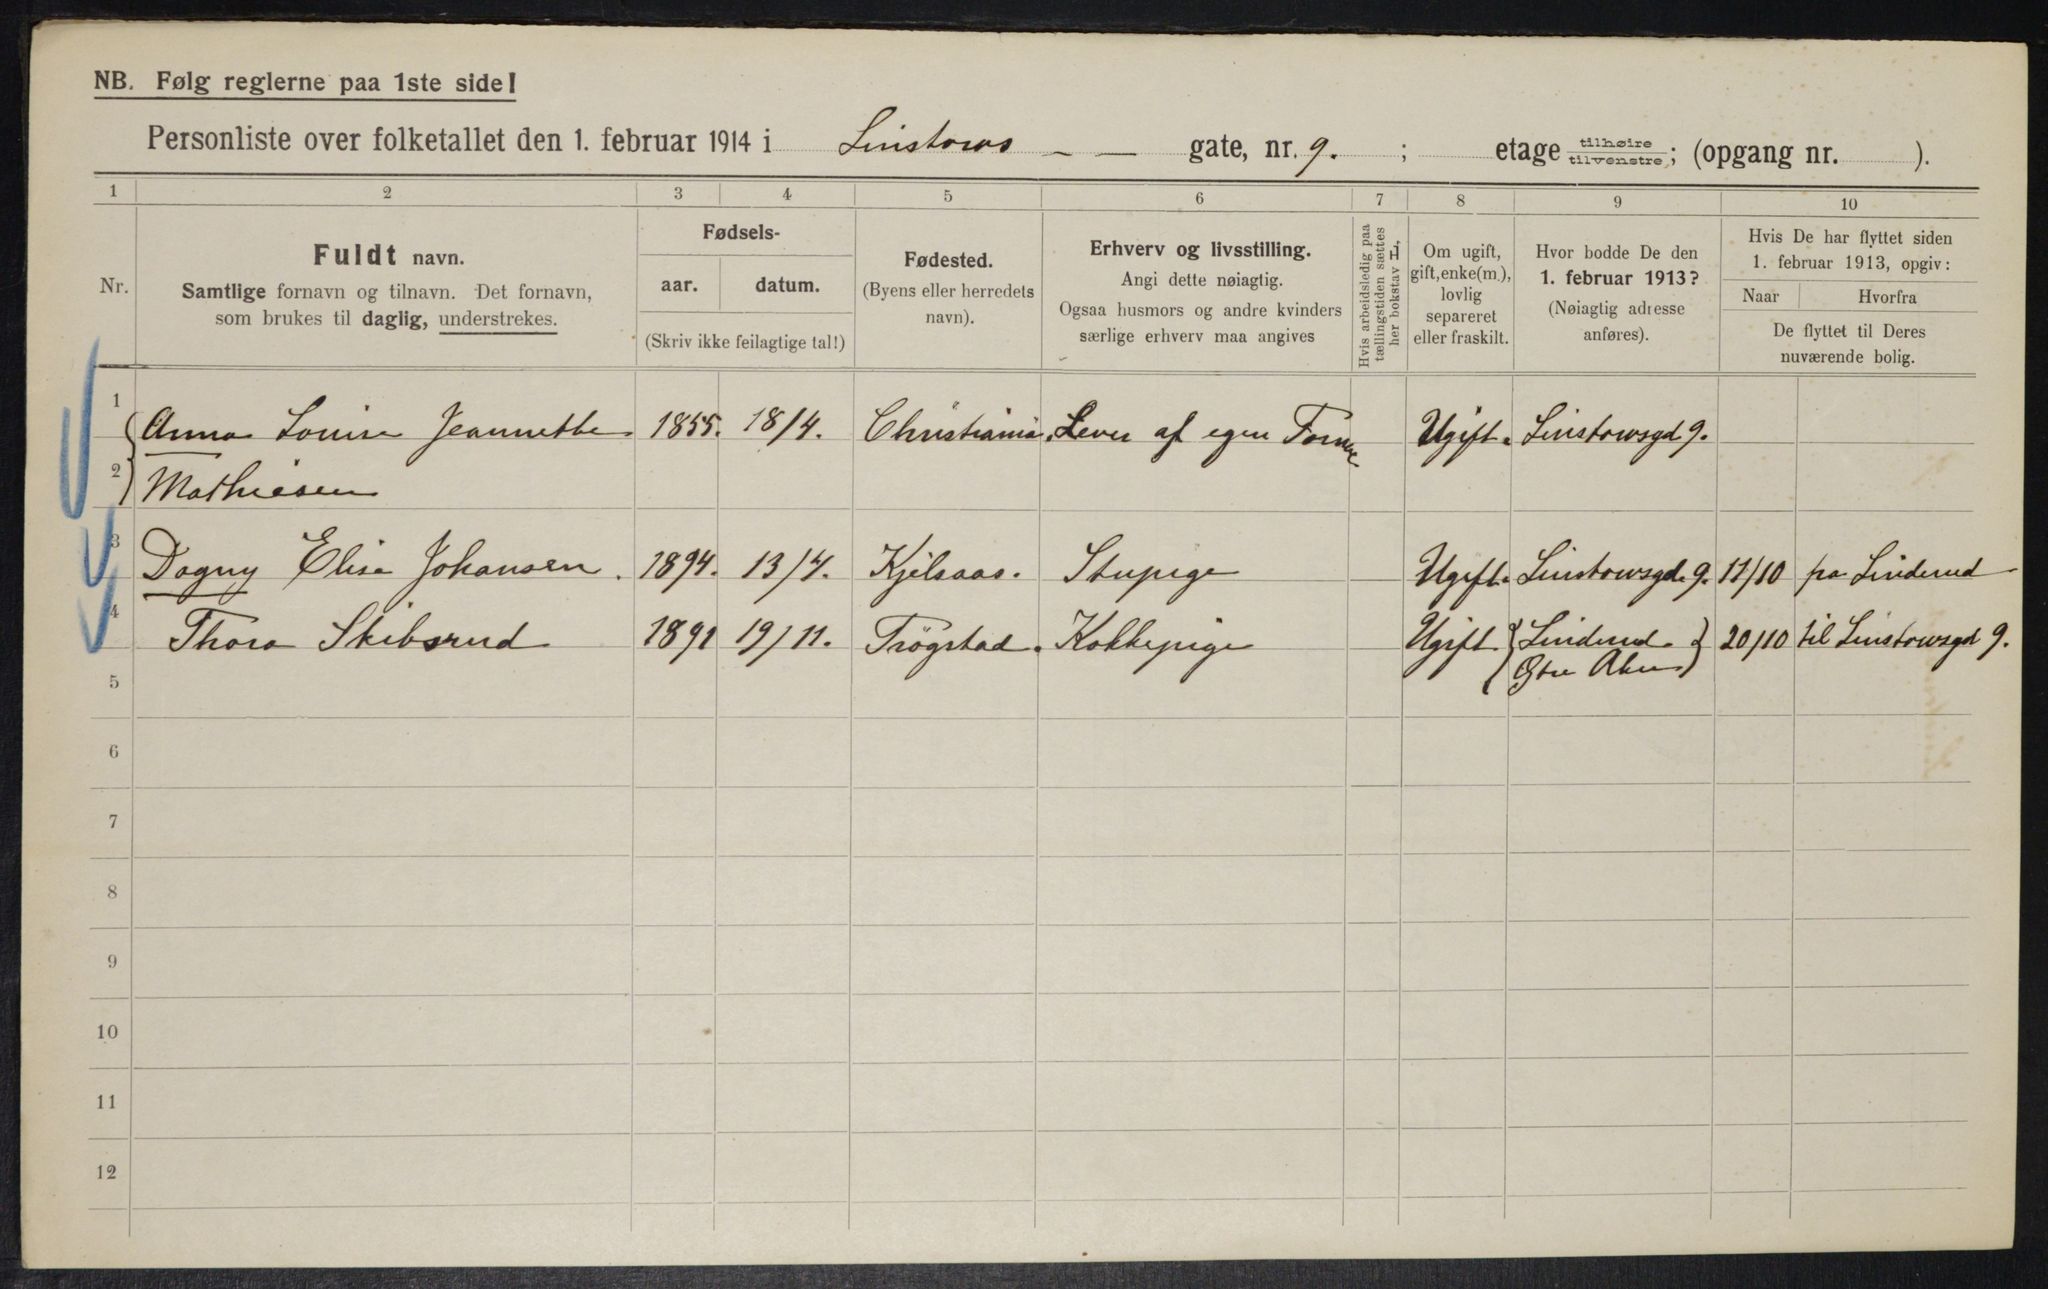 NB. Følg reglerne paa 1ste side!
Personliste over folketallet den 1. februar 1914 i Linstows — — gate, nr. 9. ; etage tilhøire tilvenstre; (opgang nr. ).
1 2 3 4 5 6 7 8 9 10
Nr.
Fuldt navn.
Samtlige fornavn og tilnavn. Det fornavn,
som brukes til daglig, understrekes.
Fødsels-
aar. datum.
(Skriv ikke feilagtige tal!)
Fødested.
(Byens eller herredets
navn).
Erhverv og livsstilling.
Angi dette nøiagtig.
Ogsaa husmors og andre kvinders
særlige erhverv maa angives
Hvis arbeidsledig paa
tællingstiden sættes
her bokstav L.
Om ugift,
gift, enke(m.),
lovlig
separeret
eller fraskilt.
Hvor bodde De den
1. februar 1913?
(Nøiagtig adresse
anføres).
Hvis De har flyttet siden
1. februar 1913, opgiv:
Naar Hvorfra
De flyttet til Deres
nuværende bolig.
1 Anna Louise Jeannette 1855. 18/4. Christiania. Lever af egen Formue Ugift. Linstowsgd 9.
2 Mathiesen
3 Dagny Elise Johansen. 1894. 13/4. Kjelsaas. Stupige Ugift. Linstowsgd. 9. 11/10 fra Linderud
4 Thora Skibsrud 1891 19/11. Trögstad. Kokkepige Ugift { Linderud } 20/10 til Linstowsgd 9.
Østre Aker
5
6
7
8
9
10
11
12